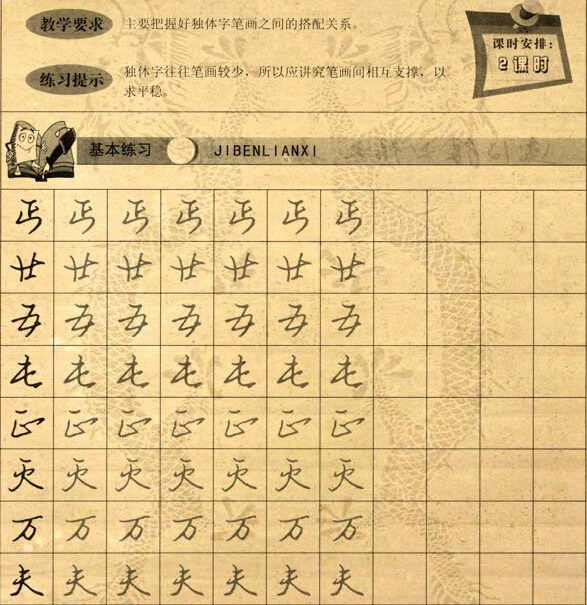 教学要求 主要把握好独体字笔画之间的搭配关系。
课时安排：
2课时
练习提示 独体字往往笔画较少，所以应讲究笔画间相互支撑，以
求平稳。
基本练习 JIBENLIANXI
丐 丐 丐 丐 丐 丐 丐
廿 廿 廿 廿 廿 廿 廿
五 五 五 五 五 五 五
正 正 正 正 正 正 正
万 万 万 万 万 万 万
夫 夫 夫 夫 夫 夫 夫